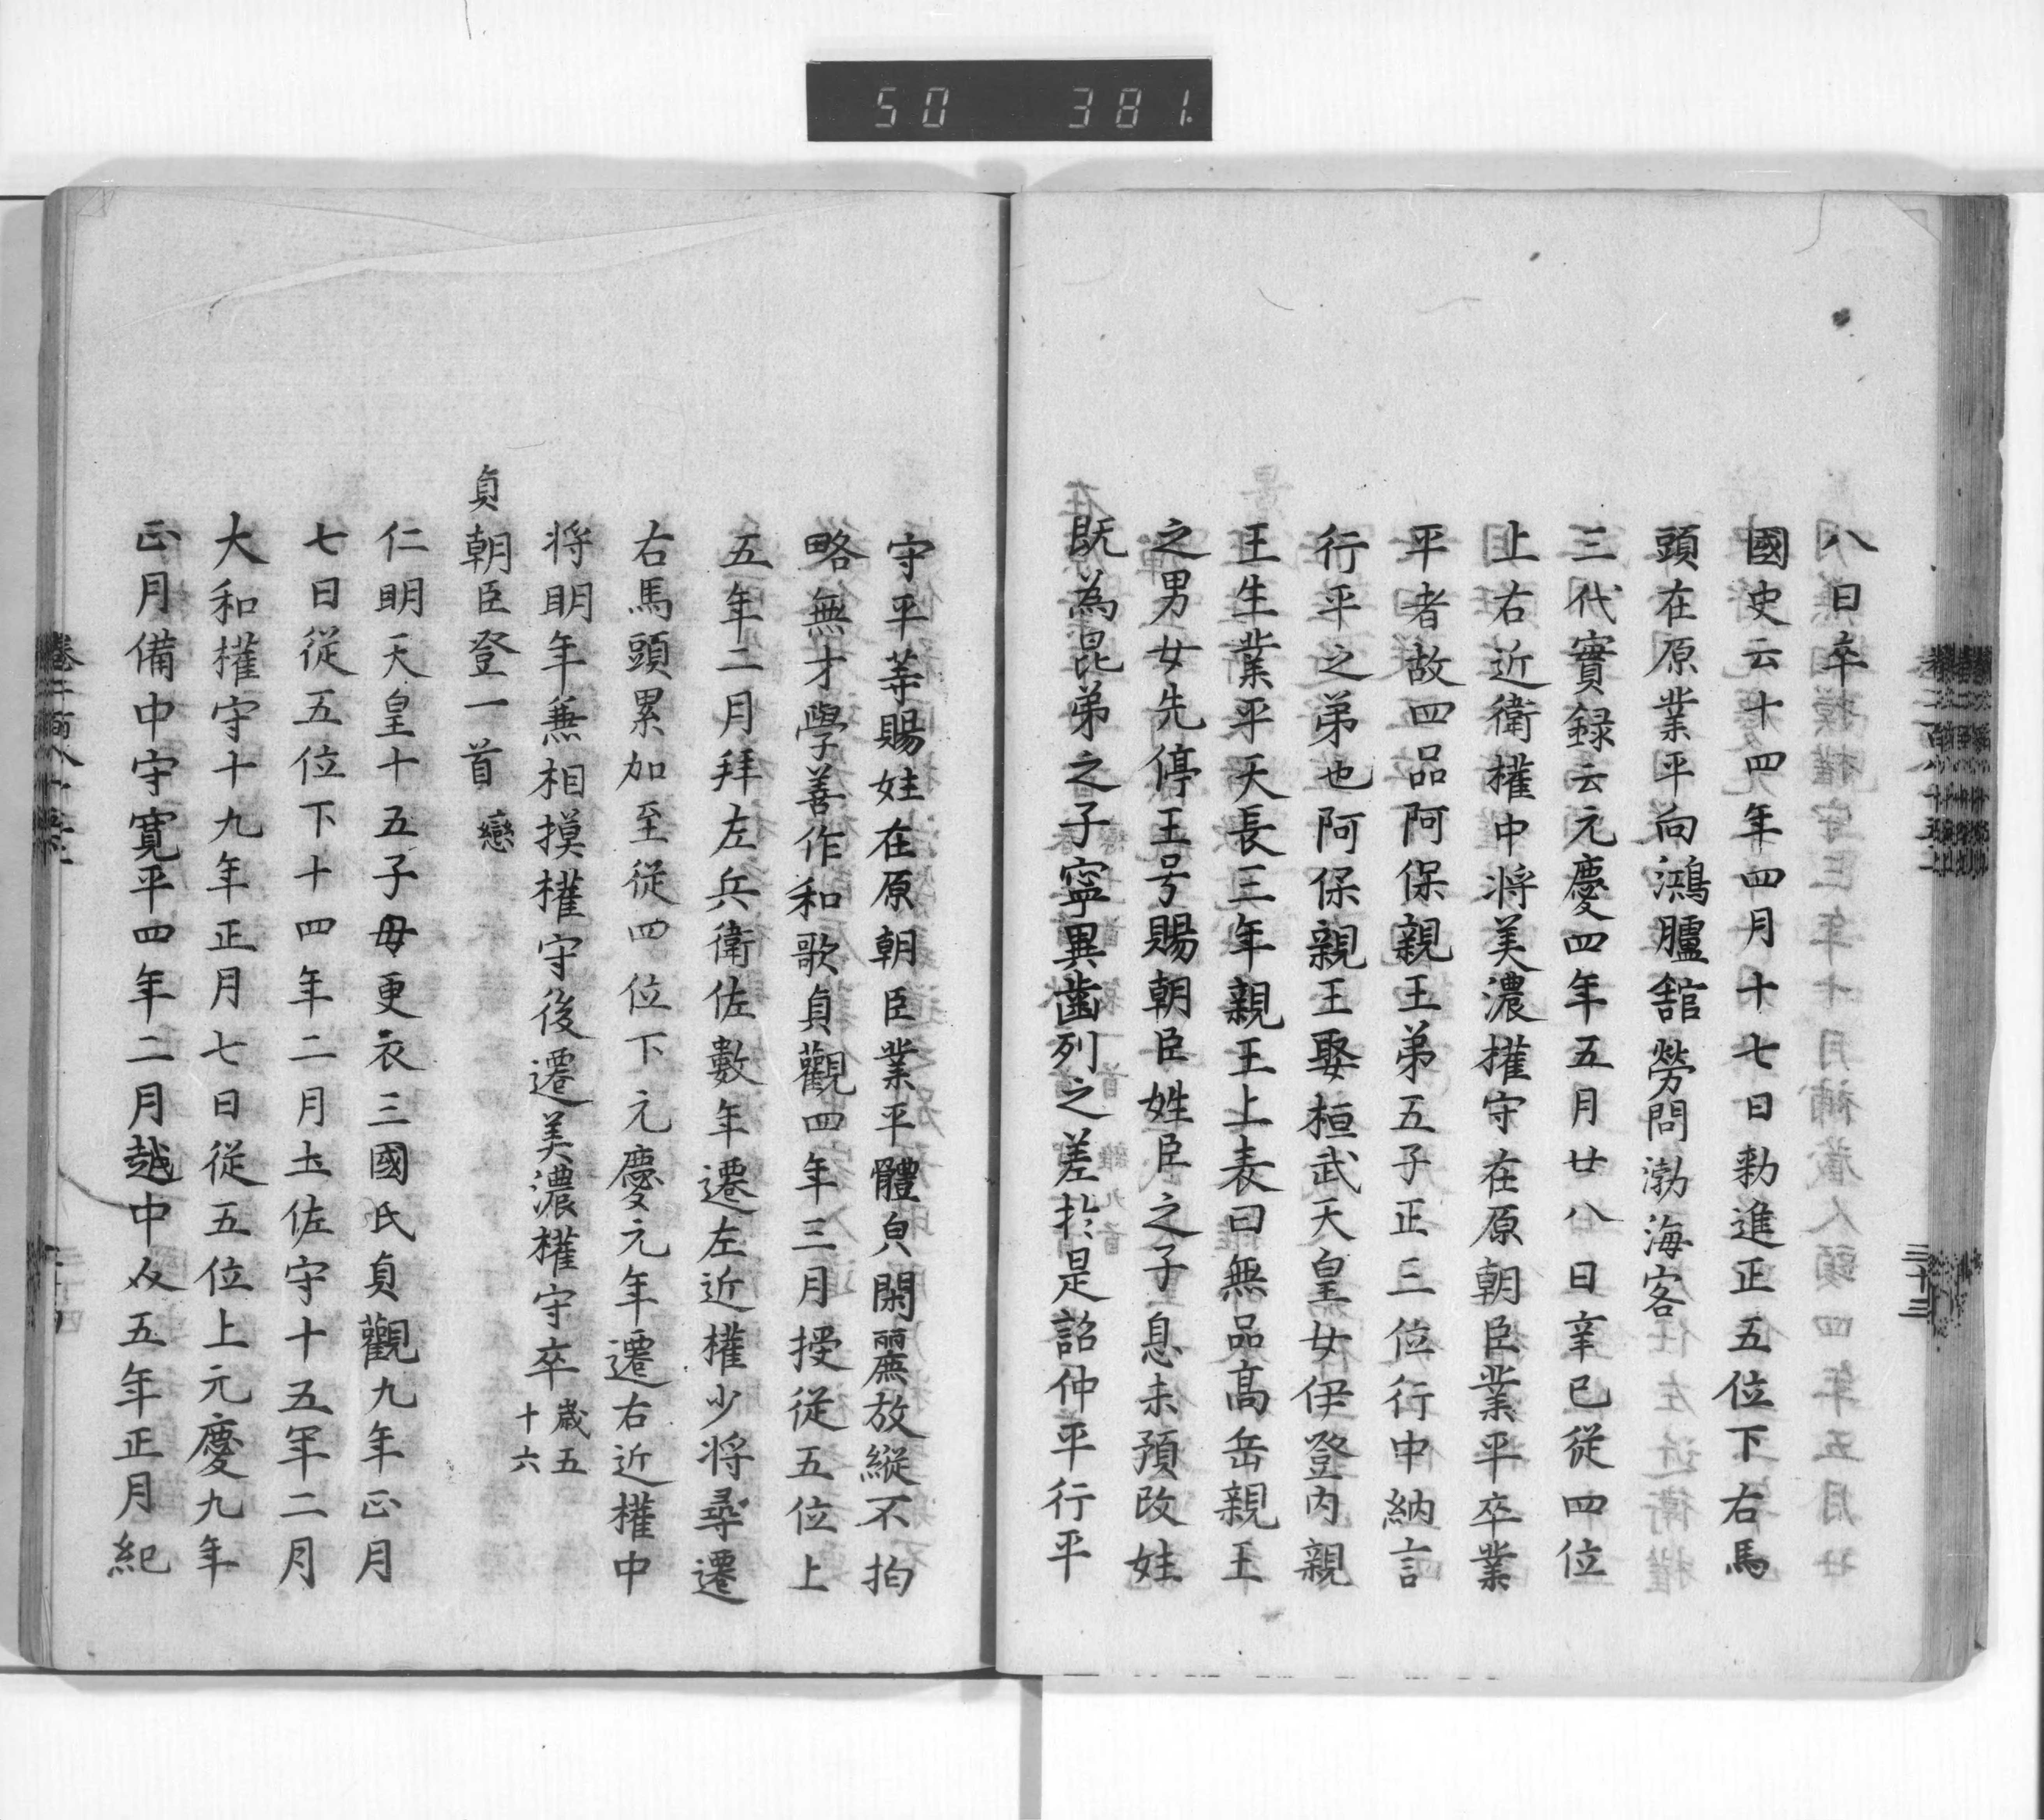 50 381.
八日卒
國史云十四年四月十七日勅進正五位下右馬
頭在原業平向鴻臚舘勞問渤海客
三代實録云元慶四年五月廿八日辛巳従四位
上右近衛權中将美濃權守在原朝臣業平卒業
平者故四品阿保親王弟五子正三位行中納言
行平之弟也阿保親王娶桓武天皇女伊登内親
王生業平天長三年親王上表曰無品髙岳親王
之男女先停王号賜朝臣姓臣之子息未預改姓
既為昆弟之子寧異歯列之差於是詔仲平行平
三十三
守平等賜姓在原朝臣業平體皃閑麗放縦不拘
略無才學善作和歌貞觀四年三月授従五位上
五年二月拜左兵衛佐數年遷左近權少将尋遷
右馬頭累加至従四位下元慶元年遷右近權中
将明年兼相摸權守後遷美濃權守卒歳五十六
貞朝臣登一首 戀
仁明天皇十五子母更衣三國氏貞觀九年正月
七日従五位下十四年二月土佐守十五年二月
大和權守十九年正月七日従五位上元慶九年
正月備中守寛平四年二月越中介五年正月紀